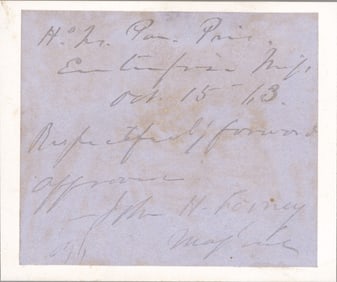 Hd. Qrs. Par. Pris.
Enterprise Miss.
Oct. 15 /63.
Respectfully forward
approved
John H. Forney
Maj Genl